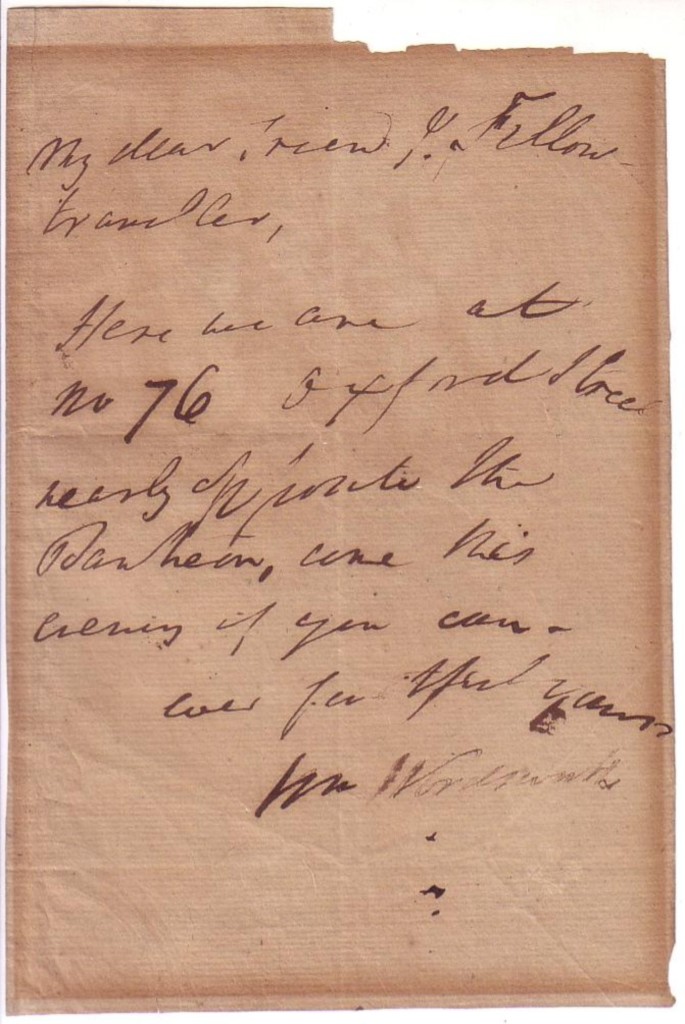 My dear Friend & Fellow-
traveller,
Here we are at
No 76 Oxford Street
nearly opposite the
Pantheon, come this
evening if you can -
ever faithful yours
Wm Wordsworth